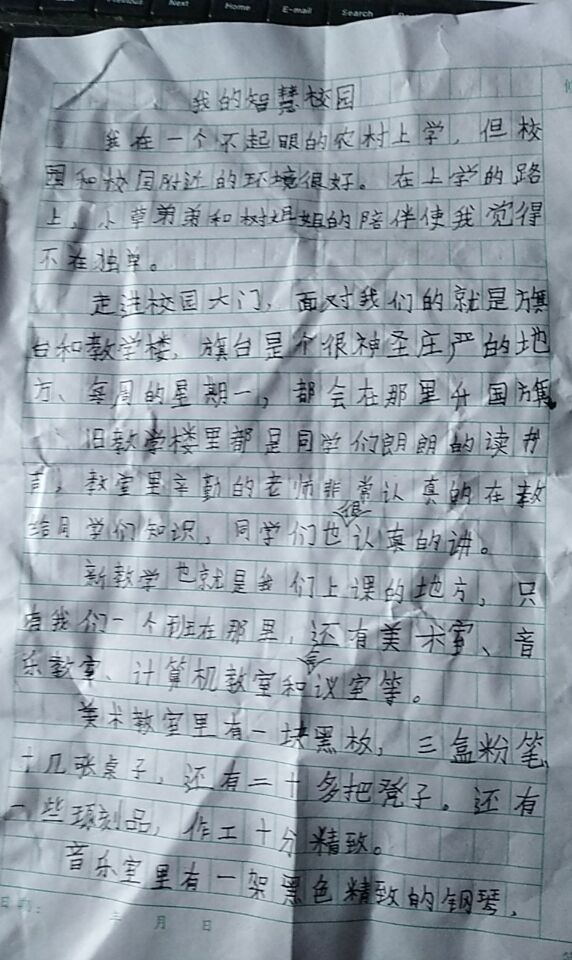 Previous Next Home E-mail Search
我的智慧校园
我在一个不起眼的农村上学，但校
园和校园附近的环境很好。在上学的路
上，小草弟弟和树姐姐的陪伴使我觉得
不在独单。
走进校园大门，面对我们的就是旗
台和教学楼，旗台是个很神圣庄严的地
方、每周的星期一，都会在那里升国旗
旧教学楼里都是同学们朗朗的读书
音，教室里辛勤的老师非常认真的在教
给同学们知识，同学们也很认真的讲。
新教学也就是我们上课的地方，只
有我们一个班在那里，还有美术室、音
乐教室、计算机教室和会议室等。
美术教室里有一块黑板，三盒粉笔
十几张桌子，还有二十多把凳子。还有
一些刻品，作工十分精致。
音乐室里有一架黑色精致的钢琴，
年 月 日